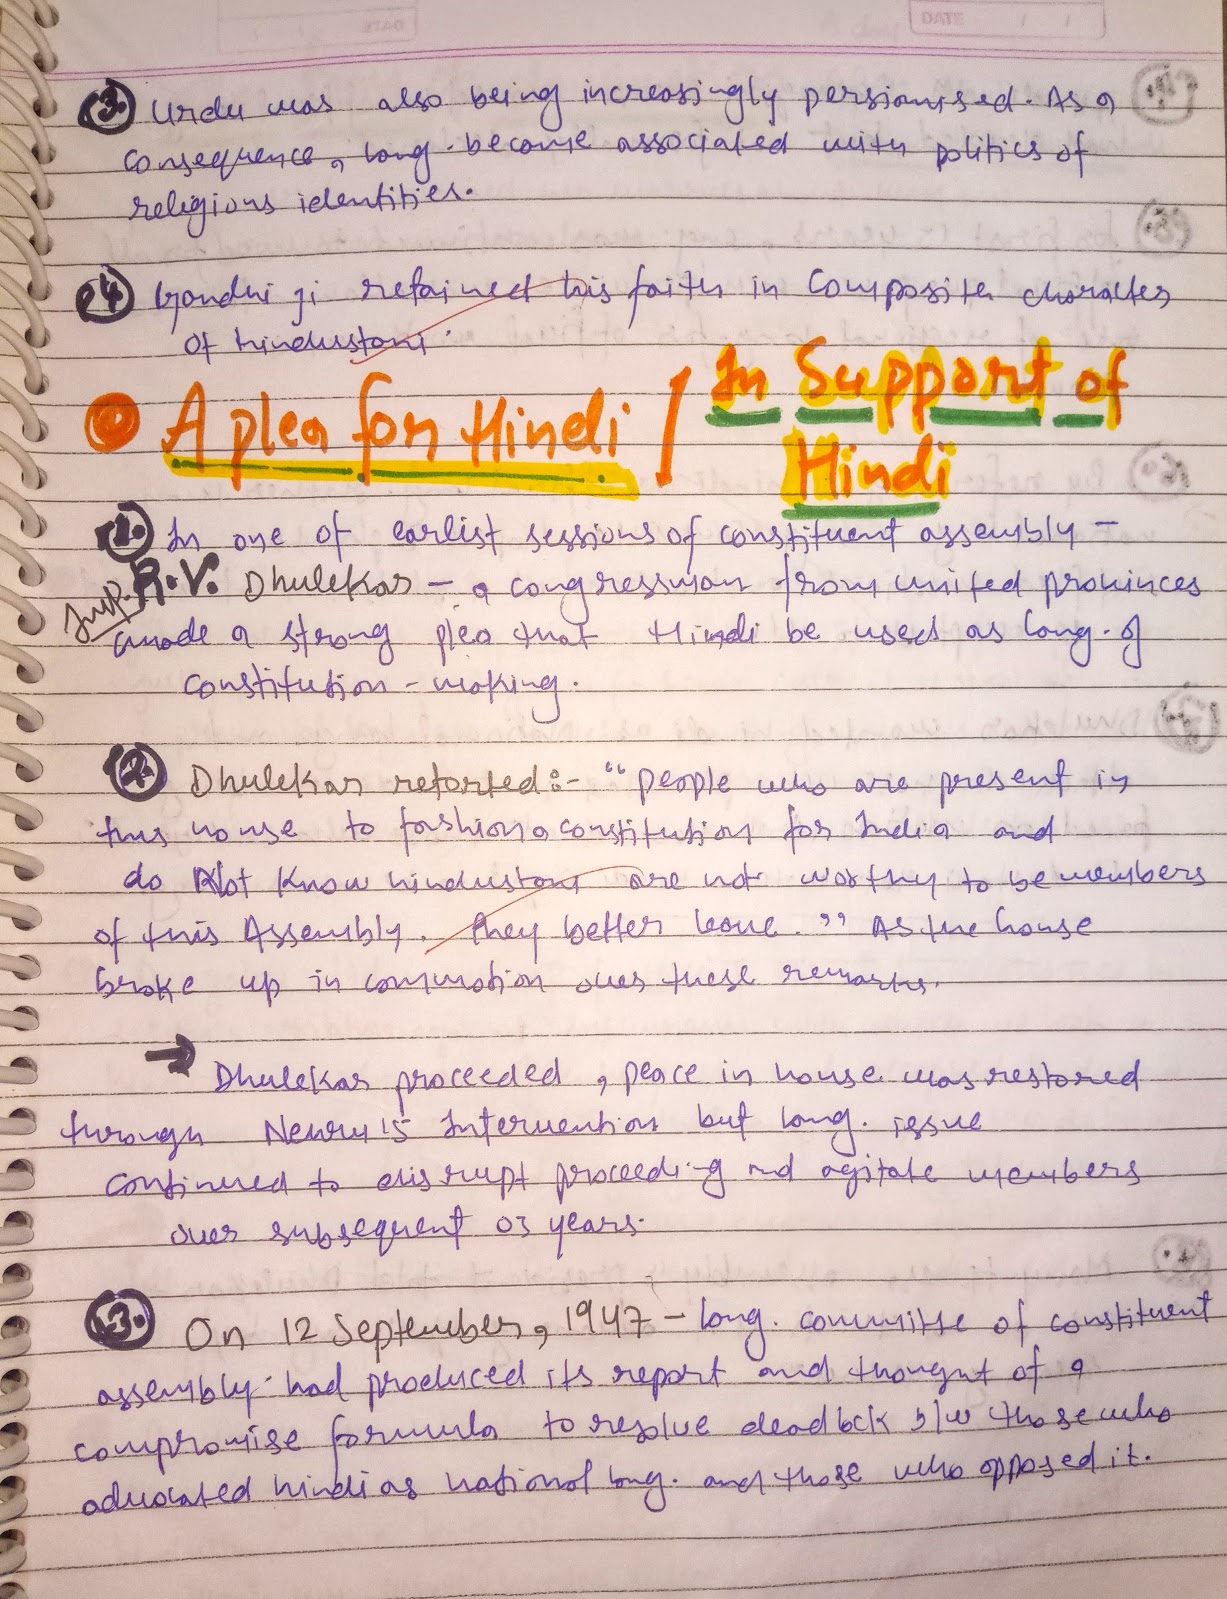 3. Urdu was also being increasingly persianised. As a
consequence, lang. become associated with politics of
religious identities.
4. Gandhi ji retained his faith in Composite character
of hindustani.
A plea for Hindi / In Support of
Hindi
1. In one of earlist sessions of constituent assembly -
Imp. R.V. Dhulekar - a congressman from united provinces
made a strong plea that Hindi be used as lang. of
constitution - making.
2. Dhulekar retorted :- "people who are present in
this house to fashion a constitution for India and
do Not know hindustani are not worthy to be members
of this Assembly. They better leave." As the house
broke up in commotion over these remarks.
→ Dhulekar proceeded, peace in house was restored
through Nehru's Intervention but lang. issue
continued to disrupt proceeding and agitate members
over subsequent 03 years.
3. On 12 September, 1947 - lang. committe of constituent
assembly had produced its report and thought of a
compromise formula to resolve deadlock b/w those who
advocated hindi as national lang. and those who opposed it.